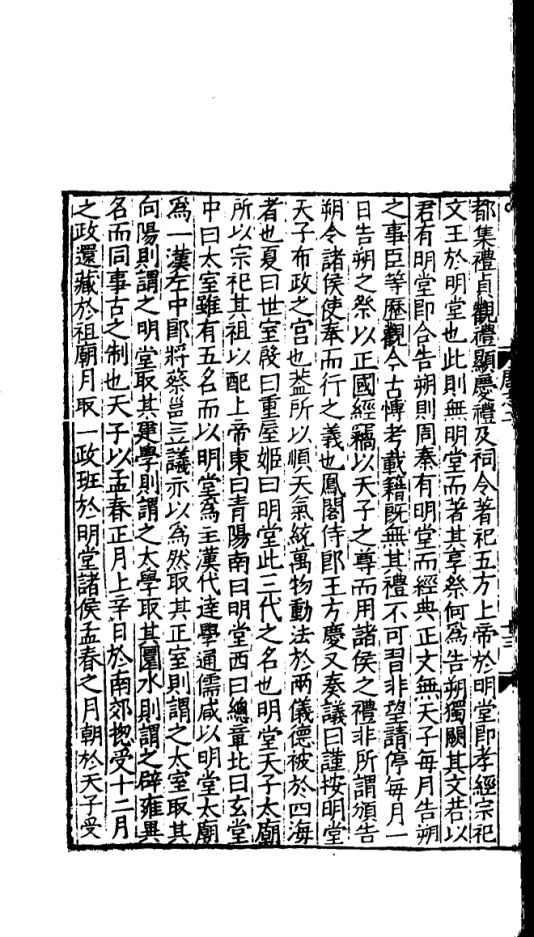 都集禮貞觀禮顯慶禮及祠令著祀五方上帝於明堂即孝經宗祀
文王於明堂也此則無明堂而著其享祭何爲告朔獨闕其文若以
君有明堂即合告朔則周秦有明堂而經典正文無天子每月告朔
之事臣等歷觀今古博考載籍既無其禮不可習非望請停每月一
日告朔之祭以正國經竊以天子之尊而用諸侯之禮非所謂頒告
朔令諸侯使奉而行之義也鳳閣侍郎王方慶又奏議曰謹按明堂
天子布政之宫也葢所以順天氣統萬物動法於兩儀德被於四海
者也夏曰世室殷曰重屋姬曰明堂此三代之名也明堂天子太廟
所以宗祀其祖以配上帝東曰青陽南曰明堂西曰總章北曰玄堂
中曰太室雖有五名而以明堂爲主漢代達學通儒咸以明堂太廟
爲一漢左中郎將蔡邕立議亦以為然取其正室則謂之太室取其
向陽則謂之明堂取其建學則謂之太學取其圜水則謂之辟雍異
名而同事古之制也天子以孟春正月上辛日於南郊揔受十二月
之政還藏於祖廟月取一政班於明堂諸侯孟春之月朝於天子受